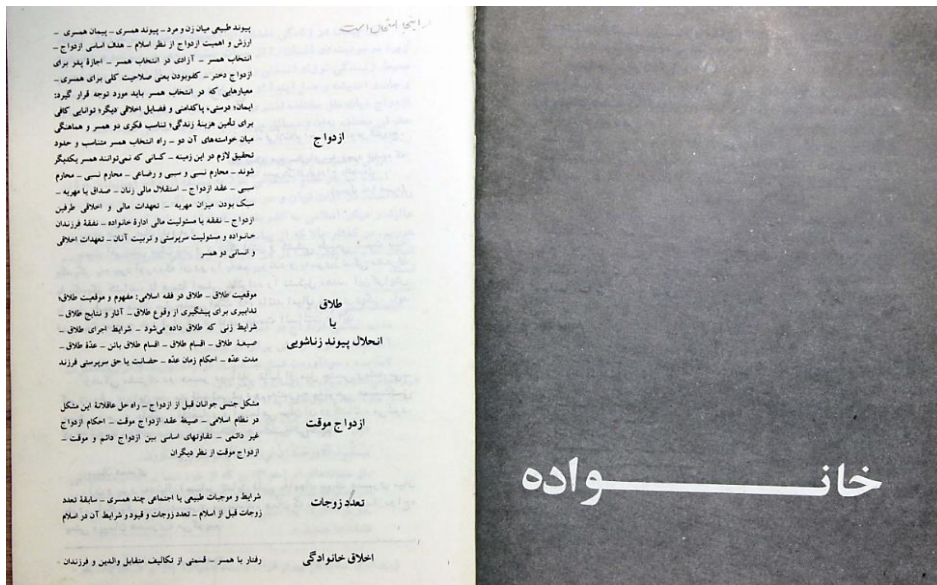 خانـــواده
از اینجا امتحان است
ازدواج
پیوند طبیعی میان زن و مرد ــ پیوند همسری ــ پیمان همسری ــ
ارزش و اهمیت ازدواج از نظر اسلام ــ هدف اساسی ازدواج ــ
انتخاب همسر ــ آزادی در انتخاب همسر ــ اجازهٔ پدر برای
ازدواج دختر ــ کفوبودن یعنی صلاحیت کلی برای همسری ــ
معیارهایی که در انتخاب همسر باید مورد توجه قرار گیرد:
ایمان؛ درستی، پاکدامنی و فضایل اخلاقی دیگر؛ توانایی کافی
برای تأمین هزینهٔ زندگی؛ تناسب فکری دو همسر و هماهنگی
میان خواسته‌های آن دو ــ راه انتخاب همسر متناسب و حدود
تحقیق لازم در این زمینه ــ کسانی که نمی‌توانند همسر یکدیگر
شوند ــ محارم نسبی و سببی و رضاعی ــ محارم نسبی ــ محارم
سببی ــ عقد ازدواج ــ استقلال مالی زنان ــ صداق یا مهریه ــ
سبک بودن میزان مهریه ــ تعهدات مالی و اخلاقی طرفین
ازدواج ــ نفقه یا مسئولیت مالی ادارهٔ خانواده ــ نفقهٔ فرزندان
خانواده و مسئولیت سرپرستی و تربیت آنان ــ تعهدات اخلاقی
و انسانی دو همسر
طلاق
یا
انحلال پیوند زناشویی
موقعیت طلاق ــ طلاق در فقه اسلامی: مفهوم و موقعیت طلاق؛
تدابیری برای پیشگیری از وقوع طلاق ــ آثار و نتایج طلاق ــ
شرایط زنی که طلاق داده می‌شود ــ شرایط اجرای طلاق ــ
صیغهٔ طلاق ــ اقسام طلاق ــ اقسام طلاق بائن ــ عدّهٔ طلاق ــ
مدت عدّه ــ احکام زمان عدّه ــ حضانت یا حق سرپرستی فرزند
ازدواج موقت
مشکل جنسی جوانان قبل از ازدواج ــ راه حل عاقلانهٔ این مشکل
در نظام اسلامی ــ صیغهٔ عقد ازدواج موقت ــ احکام ازدواج
غیر دائمی ــ تفاوتهای اساسی بین ازدواج دائم و موقت ــ
ازدواج موقت از نظر دیگران
تعدد زوجات
شرایط و موجبات طبیعی یا اجتماعی چند همسری ــ سابقهٔ تعدد
زوجات قبل از اسلام ــ تعدد زوجات و قیود و شرایط آن در اسلام
اخلاق خانوادگی
رفتار با همسر ــ قسمتی از تکالیف متقابل والدین و فرزندان ــ